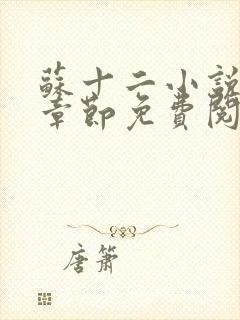 蘇十二小說
章節免費閱
唐簫